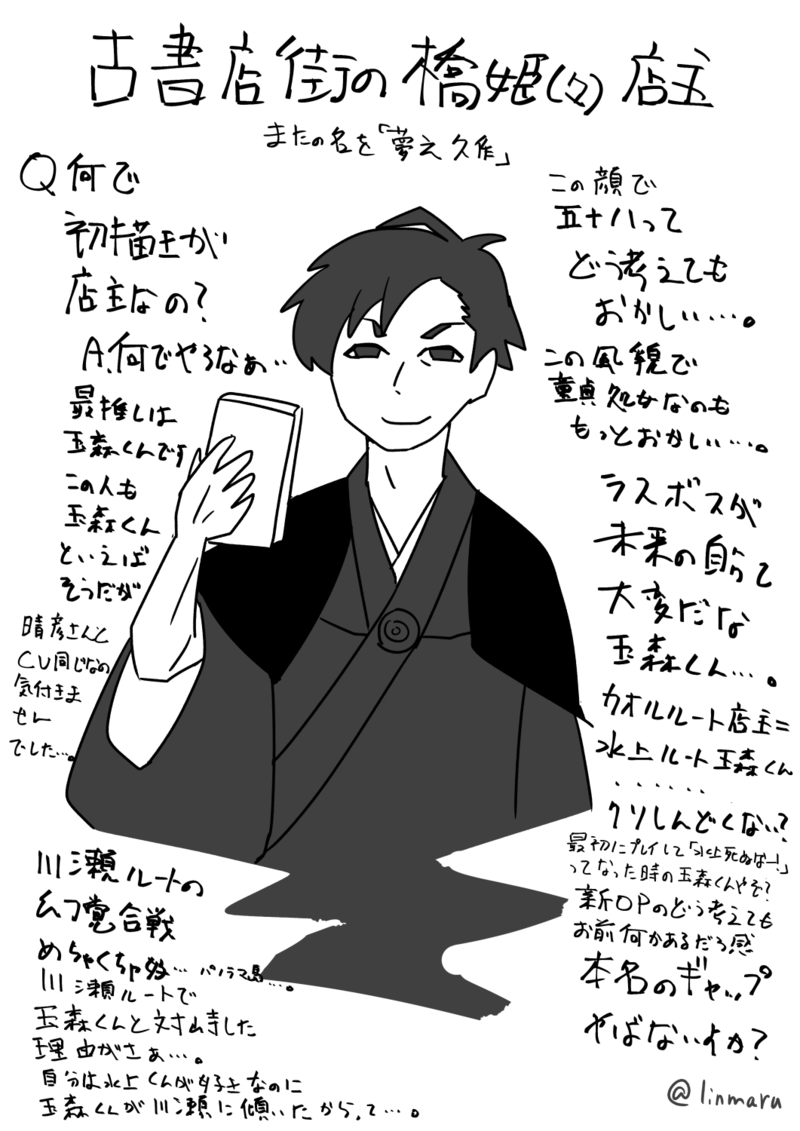 古書店街の橋姫(々) 店主
またの名を「夢之久作」
Q何で
初描きが
店主なの?
A.何でやろなぁ…
最推しは
玉森くんです
この人も
玉森くん
といえば
そうだが
晴彦さんと
CV同じなの
気付きま
せん
でした…。
川瀬ルートの
幻覚合戦
めちゃくちゃ好… パノラマ島…。
川瀬ルートで
玉森くんと対峙した
理由がさぁ…。
自分は水上くんが好きなのに
玉森くんが川瀬に傾いたからって…。
この顔で
五十八って
どう考えても
おかしい…。
この風貌で
童貞処女なのも
もっとおかしい…。
ラスボスが
未来の自分て
大変だな
玉森くん…。
カオルルート店主=
水上ルート玉森くん
……
クソしんどくない?
最初にプレイして「水上死ぬなー!」
ってなった時の玉森くんやぞ?
新OPのどう考えても
お前何かあるだろ感
本名のギャップ
やばないか?
@linmaru